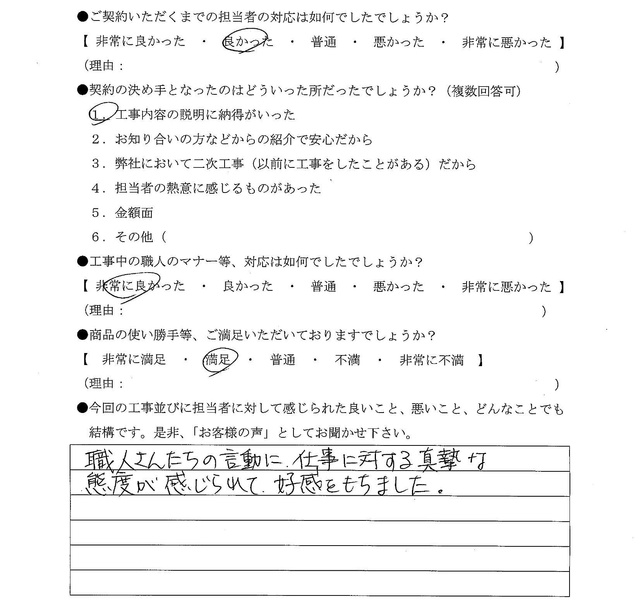 ●ご契約いただくまでの担当者の対応は如何でしたでしょうか？
【 非常に良かった ・ 良かった ・ 普通 ・ 悪かった ・ 非常に悪かった 】
（理由： ）
●契約の決め手となったのはどういった所だったでしょうか？（複数回答可）
１．工事内容の説明に納得がいった
２．お知り合いの方などからの紹介で安心だから
３．弊社において二次工事（以前に工事をしたことがある）だから
４．担当者の熱意に感じるものがあった
５．金額面
６．その他（ ）
●工事中の職人のマナー等、対応は如何でしたでしょうか？
【 非常に良かった ・ 良かった ・ 普通 ・ 悪かった ・ 非常に悪かった 】
（理由： ）
●商品の使い勝手等、ご満足いただいておりますでしょうか？
【 非常に満足 ・ 満足 ・ 普通 ・ 不満 ・ 非常に不満 】
（理由： ）
●今回の工事並びに担当者に対して感じられた良いこと、悪いこと、どんなことでも
結構です。是非、「お客様の声」としてお聞かせ下さい。
職人さんたちの言動に、仕事に対する真摯な
態度が感じられて、好感をもちました。